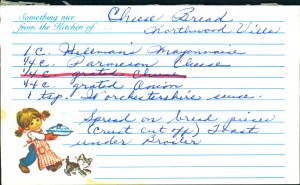 Something nice
from the Kitchen of
Cheese Bread
Northwood Villa
1 C. Hellman's Mayonnaise
1/4 c. Parmeson Cheese
1/4 c. grated Cheese
1/4 c. grated Onion
1 tsp. Worchestershire sauce.
Spread on bread pieces
(crust cut off) Toast
under Broiler